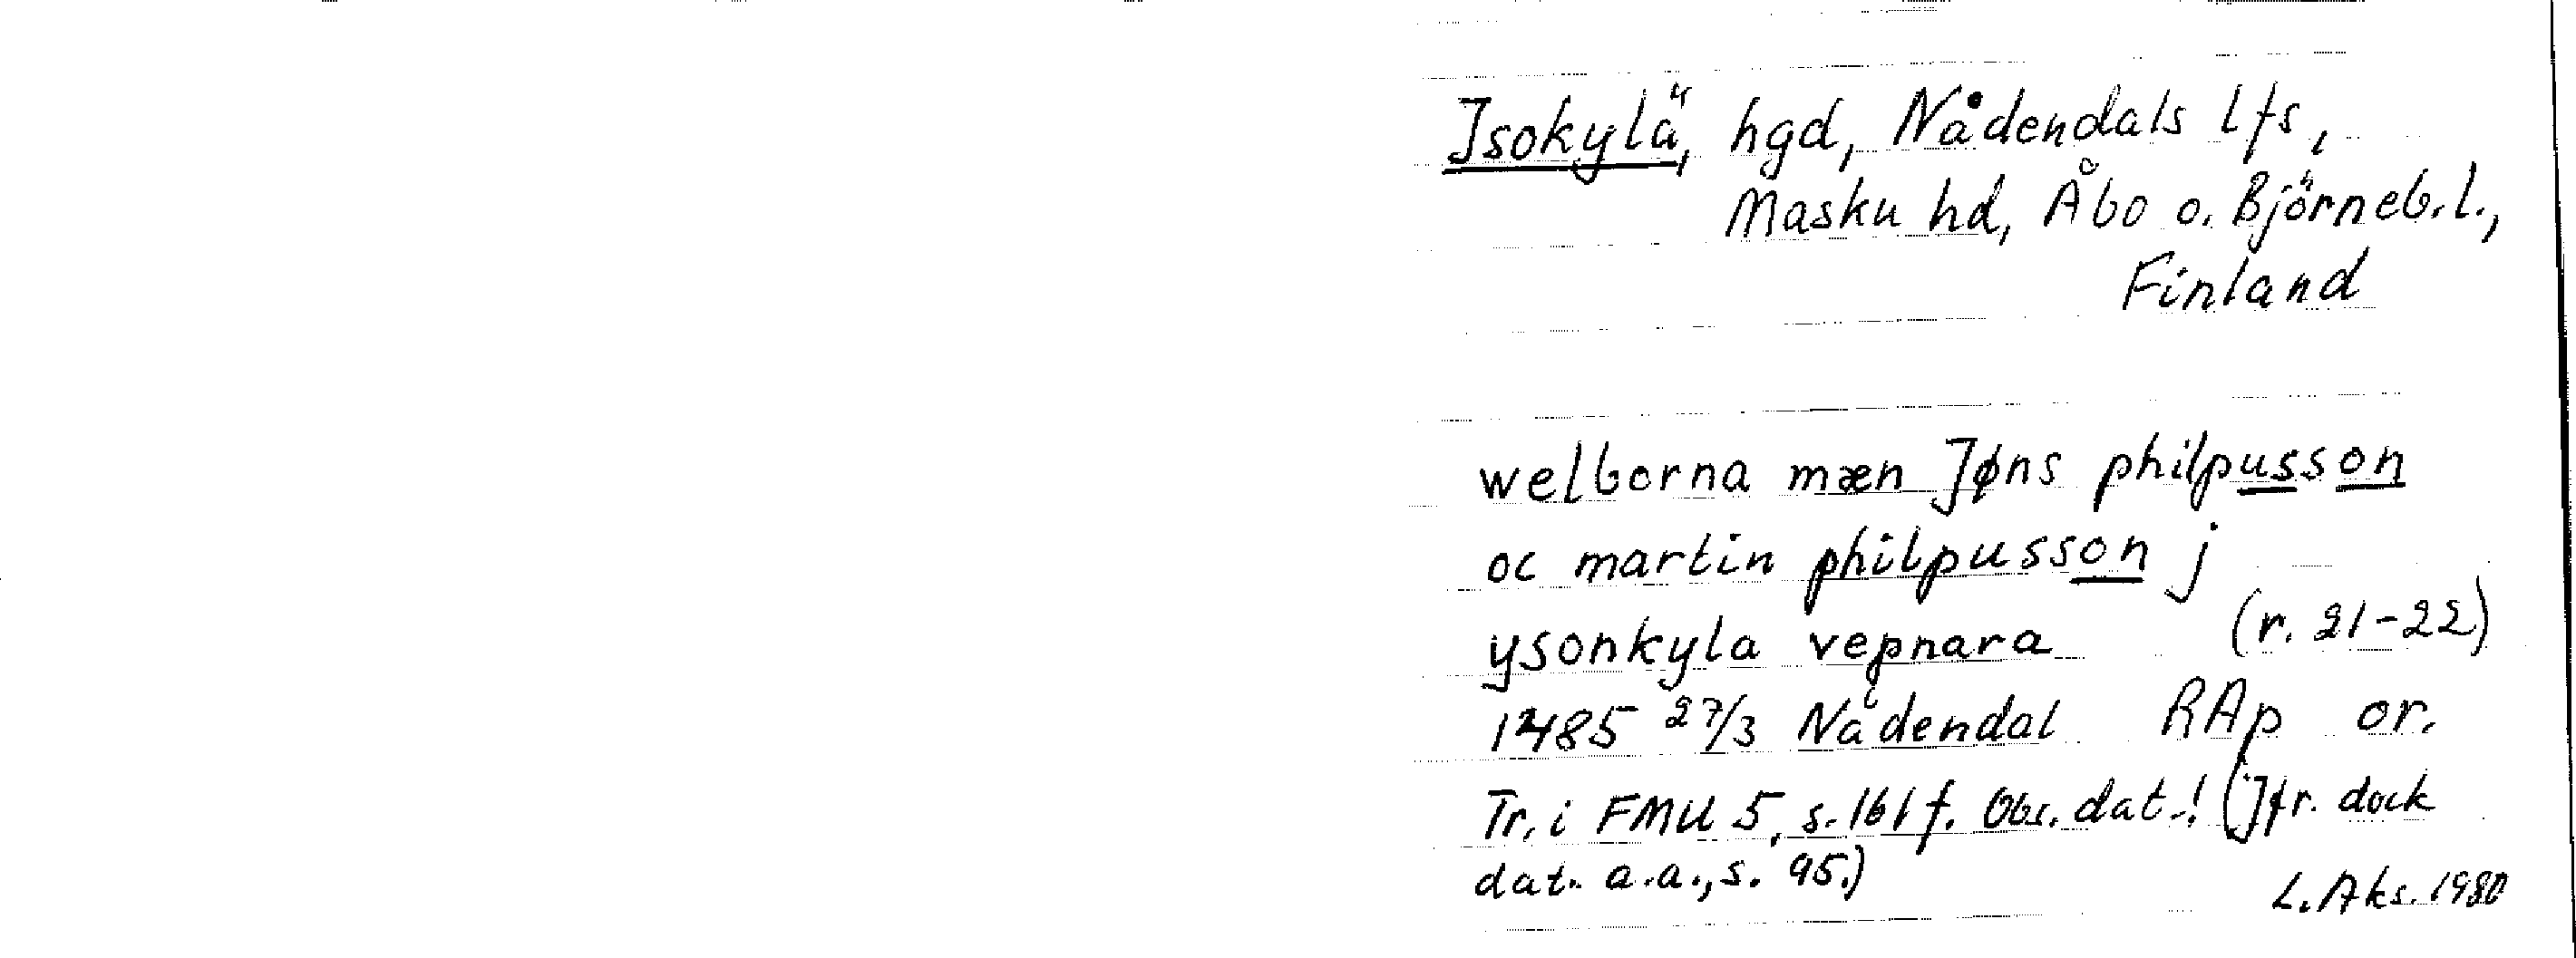 Isokylä, hgd, Nådendals lfs,
Masku hd, Åbo o. Björneb.l.,
Finland
welborna mæn Jøns philpusson
oc martin philpusson j
ysonkyla vepnara (r. 21-22)
1485 27/3 Nådendal RAp or.
Tr. i FMU 5, s. 161 f. Obs. dat.! (Jfr. dock
dat. a.a., s. 95.)
L. Aks. 1980